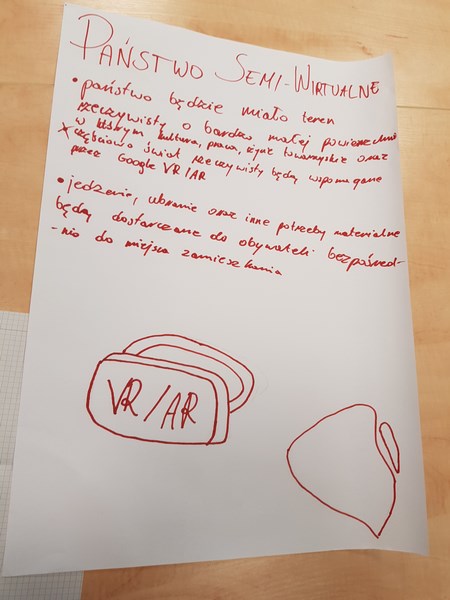 PAŃSTWO SEMI-WIRTUALNE
• państwo będzie miało teren
rzeczywisty o bardzo małej powierzchni
w którym kultura, praca, życie towarzyskie oraz
x częściowo świat rzeczywisty będą wspomagane
przez Google VR/AR
• jedzenie, ubranie oraz inne potrzeby materialne
będą dostarczane do obywateli bezpośred-
-nio do miejsca zamieszkania
VR/AR